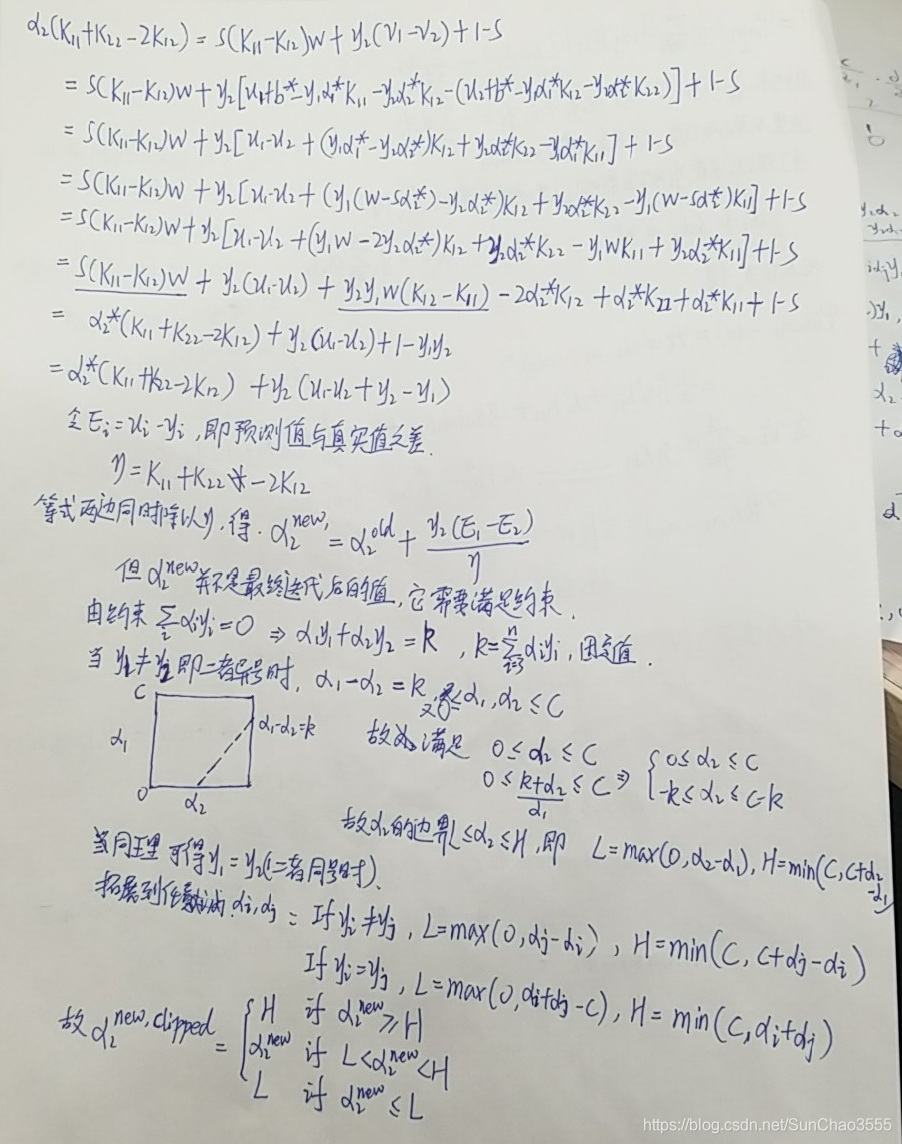 α₂(K₁₁+K₂₂-2K₁₂) = S(K₁₁-K₁₂)W + y₂(V₁-V₂)+1-S
= S(K₁₁-K₁₂)W + y₂[u₁+b*-y₁α₁*K₁₁-y₂α₂*K₁₂-(u₂+b*-y₁α₁*K₁₂-y₂α₂*K₂₂)]+1-S
= S(K₁₁-K₁₂)W + y₂[u₁-u₂+(y₁α₁*-y₂α₂*)K₁₂+y₂α₂*K₂₂-y₁α₁*K₁₁]+1-S
= S(K₁₁-K₁₂)W + y₂[u₁-u₂+(y₁(W-Sα₂*)-y₂α₂*)K₁₂+y₂α₂*K₂₂-y₁(W-Sα₂*)K₁₁]+1-S
= S(K₁₁-K₁₂)W + y₂[u₁-u₂+(y₁W-2y₂α₂*)K₁₂+y₂α₂*K₂₂-y₁WK₁₁+y₂α₂*K₁₁]+1-S
= S(K₁₁-K₁₂)W + y₂(u₁-u₂) + y₂y₁W(K₁₂-K₁₁) -2α₂*K₁₂+α₂*K₂₂+α₂*K₁₁+1-S
= α₂*(K₁₁+K₂₂-2K₁₂)+y₂(u₁-u₂)+1-y₁y₂
= α₂*(K₁₁+K₂₂-2K₁₂) +y₂(u₁-u₂+y₂-y₁)
令Eᵢ=uᵢ-yᵢ,即预测值与真实值之差.
η=K₁₁+K₂₂-2K₁₂
等式两边同时除以η,得. α₂^new, = α₂^old + y₂(E₁-E₂)/η
但α₂^new并不是最终迭代后的值,它需要满足约束.
由约束 Σᵢαᵢyᵢ=0 ⇒ α₁y₁+α₂y₂=k , k=Σⁿᵢ₌₃αᵢyᵢ,固定值.
当 y₁≠y₂即二者异号时, α₁-α₂=k,又0≤α₁,α₂≤C
C
α₁-α₂=k
α₁
0
α₂
故α₂满足 0≤α₂≤C
0≤k+α₂≤C ⇒ {0≤α₂≤C
α₁
-k≤α₂≤C-k
故α₂的边界L≤α₂≤H,即 L=max(0,α₂-α₁), H=min(C,C+α₂-α₁)
同理可得y₁=y₂(二者同号时).
拓展到任意 αᵢ,αⱼ = If yᵢ≠yⱼ, L=max(0,αⱼ-αᵢ), H=min(C, C+αⱼ-αᵢ)
If yᵢ=yⱼ, L=max(0,αᵢ+αⱼ-C), H=min(C,αᵢ+αⱼ)
故α₂^new,clipped = {H if α₂^new≥H
α₂^new if L<α₂^new<H
L if α₂^new≤L
https://blog.csdn.net/SunChao3555